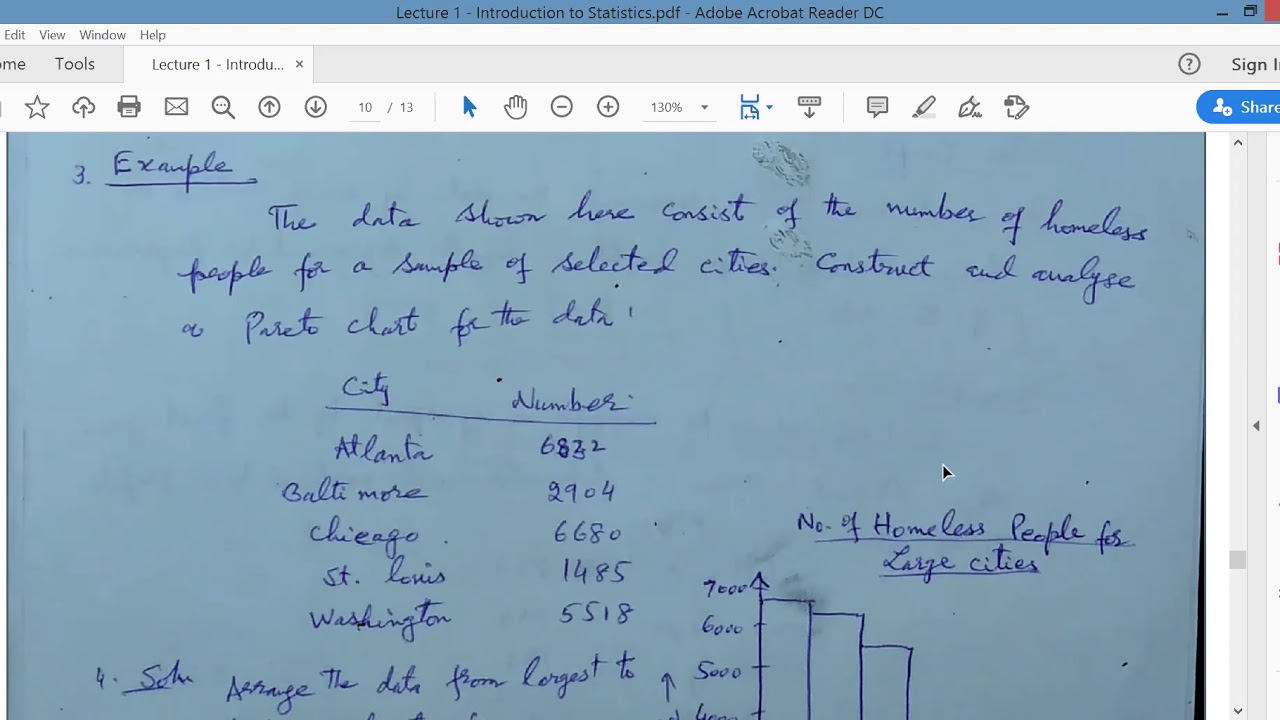 Lecture 1 - Introduction to Statistics.pdf - Adobe Acrobat Reader DC
Edit View Window Help
ome Tools Lecture 1 - Introdu... ×
10 / 13 130% Share
Sign I
3. Example
The data shown here consist of the number of homeless
people for a sample of selected cities. Construct and analyse
a Pareto chart for the data
City Number
Atlanta 6832
Baltimore 2904
Chicago 6680
St. louis 1485
Washington 5518
No. of Homeless People for
Large cities
7000
6000
5000
4000
4. Soln Arrange the data from largest to